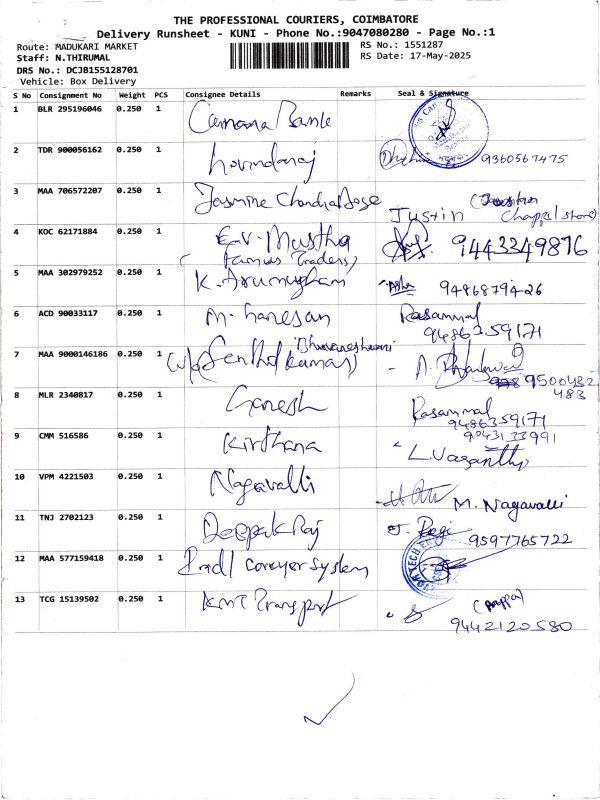 THE PROFESSIONAL COURIERS, COIMBATORE
Delivery Runsheet - KUNI - Phone No.:9047080280 - Page No.:1
Route: MADUKARI MARKET RS No.: 1551287
Staff: N.THIRUMAL RS Date: 17-May-2025
DRS No.: DCJB155128701
Vehicle: Box Delivery
S No Consignment No Weight PCS Consignee Details Remarks Seal & Signature
1 BLR 295196046 0.250 1 Canana Bank
2 TDR 900056162 0.250 1 Govindaraj 9360567475
3 MAA 706572207 0.250 1 Jasmine Chandra Bose Justin
4 KOC 62171884 0.250 1 E.V. Mustha 9443349876
(Famus Traders)
5 MAA 302979252 0.250 1 K. Arumugham Asha 9486879426
6 ACD 90033117 0.250 1 M. Ganesan Rasammal
9486359171
7 MAA 9000146186 0.250 1 Bhuvaneshwari
W/o Senthil Kumar) 9500432
483
8 MLR 2340817 0.250 1 Ganesh Rasammal
9486359171
9 CMM 516586 0.250 1 Kirthana 9043133991
L. Vasanthi
10 VPM 4221503 0.250 1 Nagavalli M. Nagavalli
11 TNJ 2702123 0.250 1 Deepak Raj J. Regi
9597765722
12 MAA 577159418 0.250 1 conveyer system
13 TCG 15139502 0.250 1 KMT Transport (Pappa)
9442120580